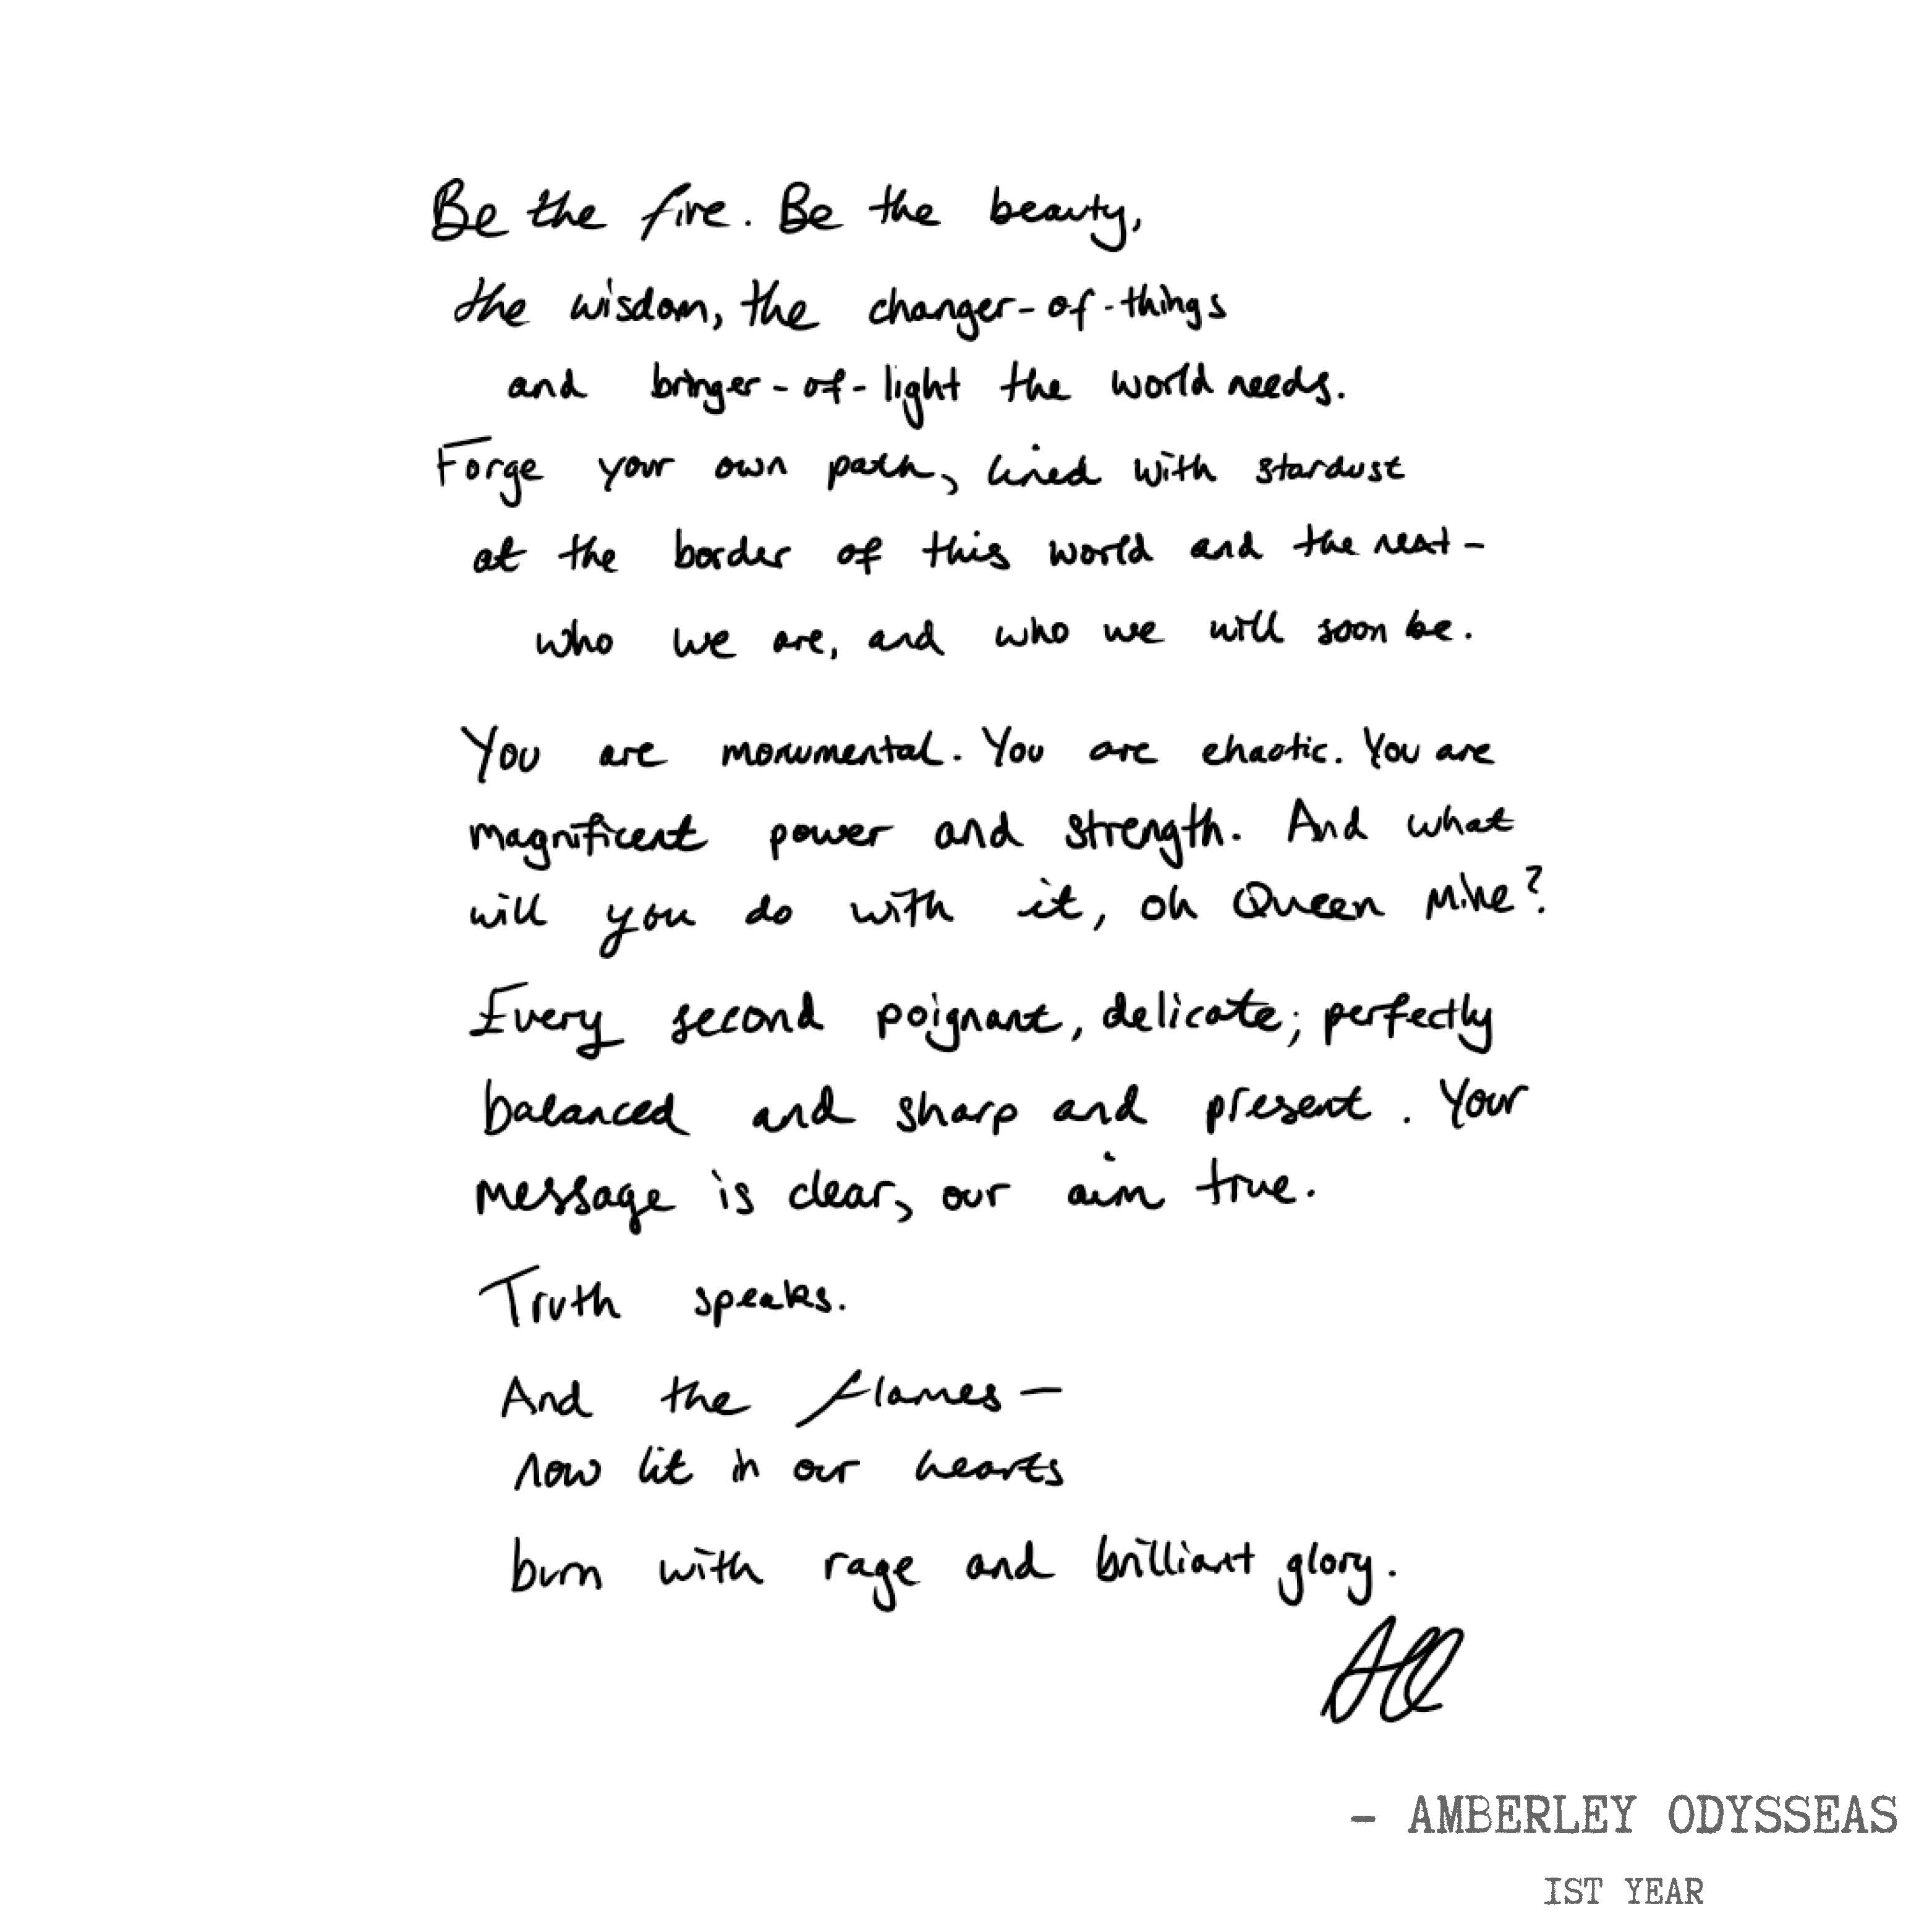 Be the fire. Be the beauty,
the wisdom, the changer-of-things
and bringer-of-light the world needs.
Forge your own path, lined with stardust
at the border of this world and the next-
who we are, and who we will soon be.
You are monumental. You are chaotic. You are
magnificent power and strength. And what
will you do with it, oh Queen Mine?
Every second poignant, delicate; perfectly
balanced and sharp and present. Your
message is clear, our aim true.
Truth speaks.
And the flames—
now lit in our hearts
burn with rage and brilliant glory.
- AMBERLEY ODYSSEAS
1ST YEAR